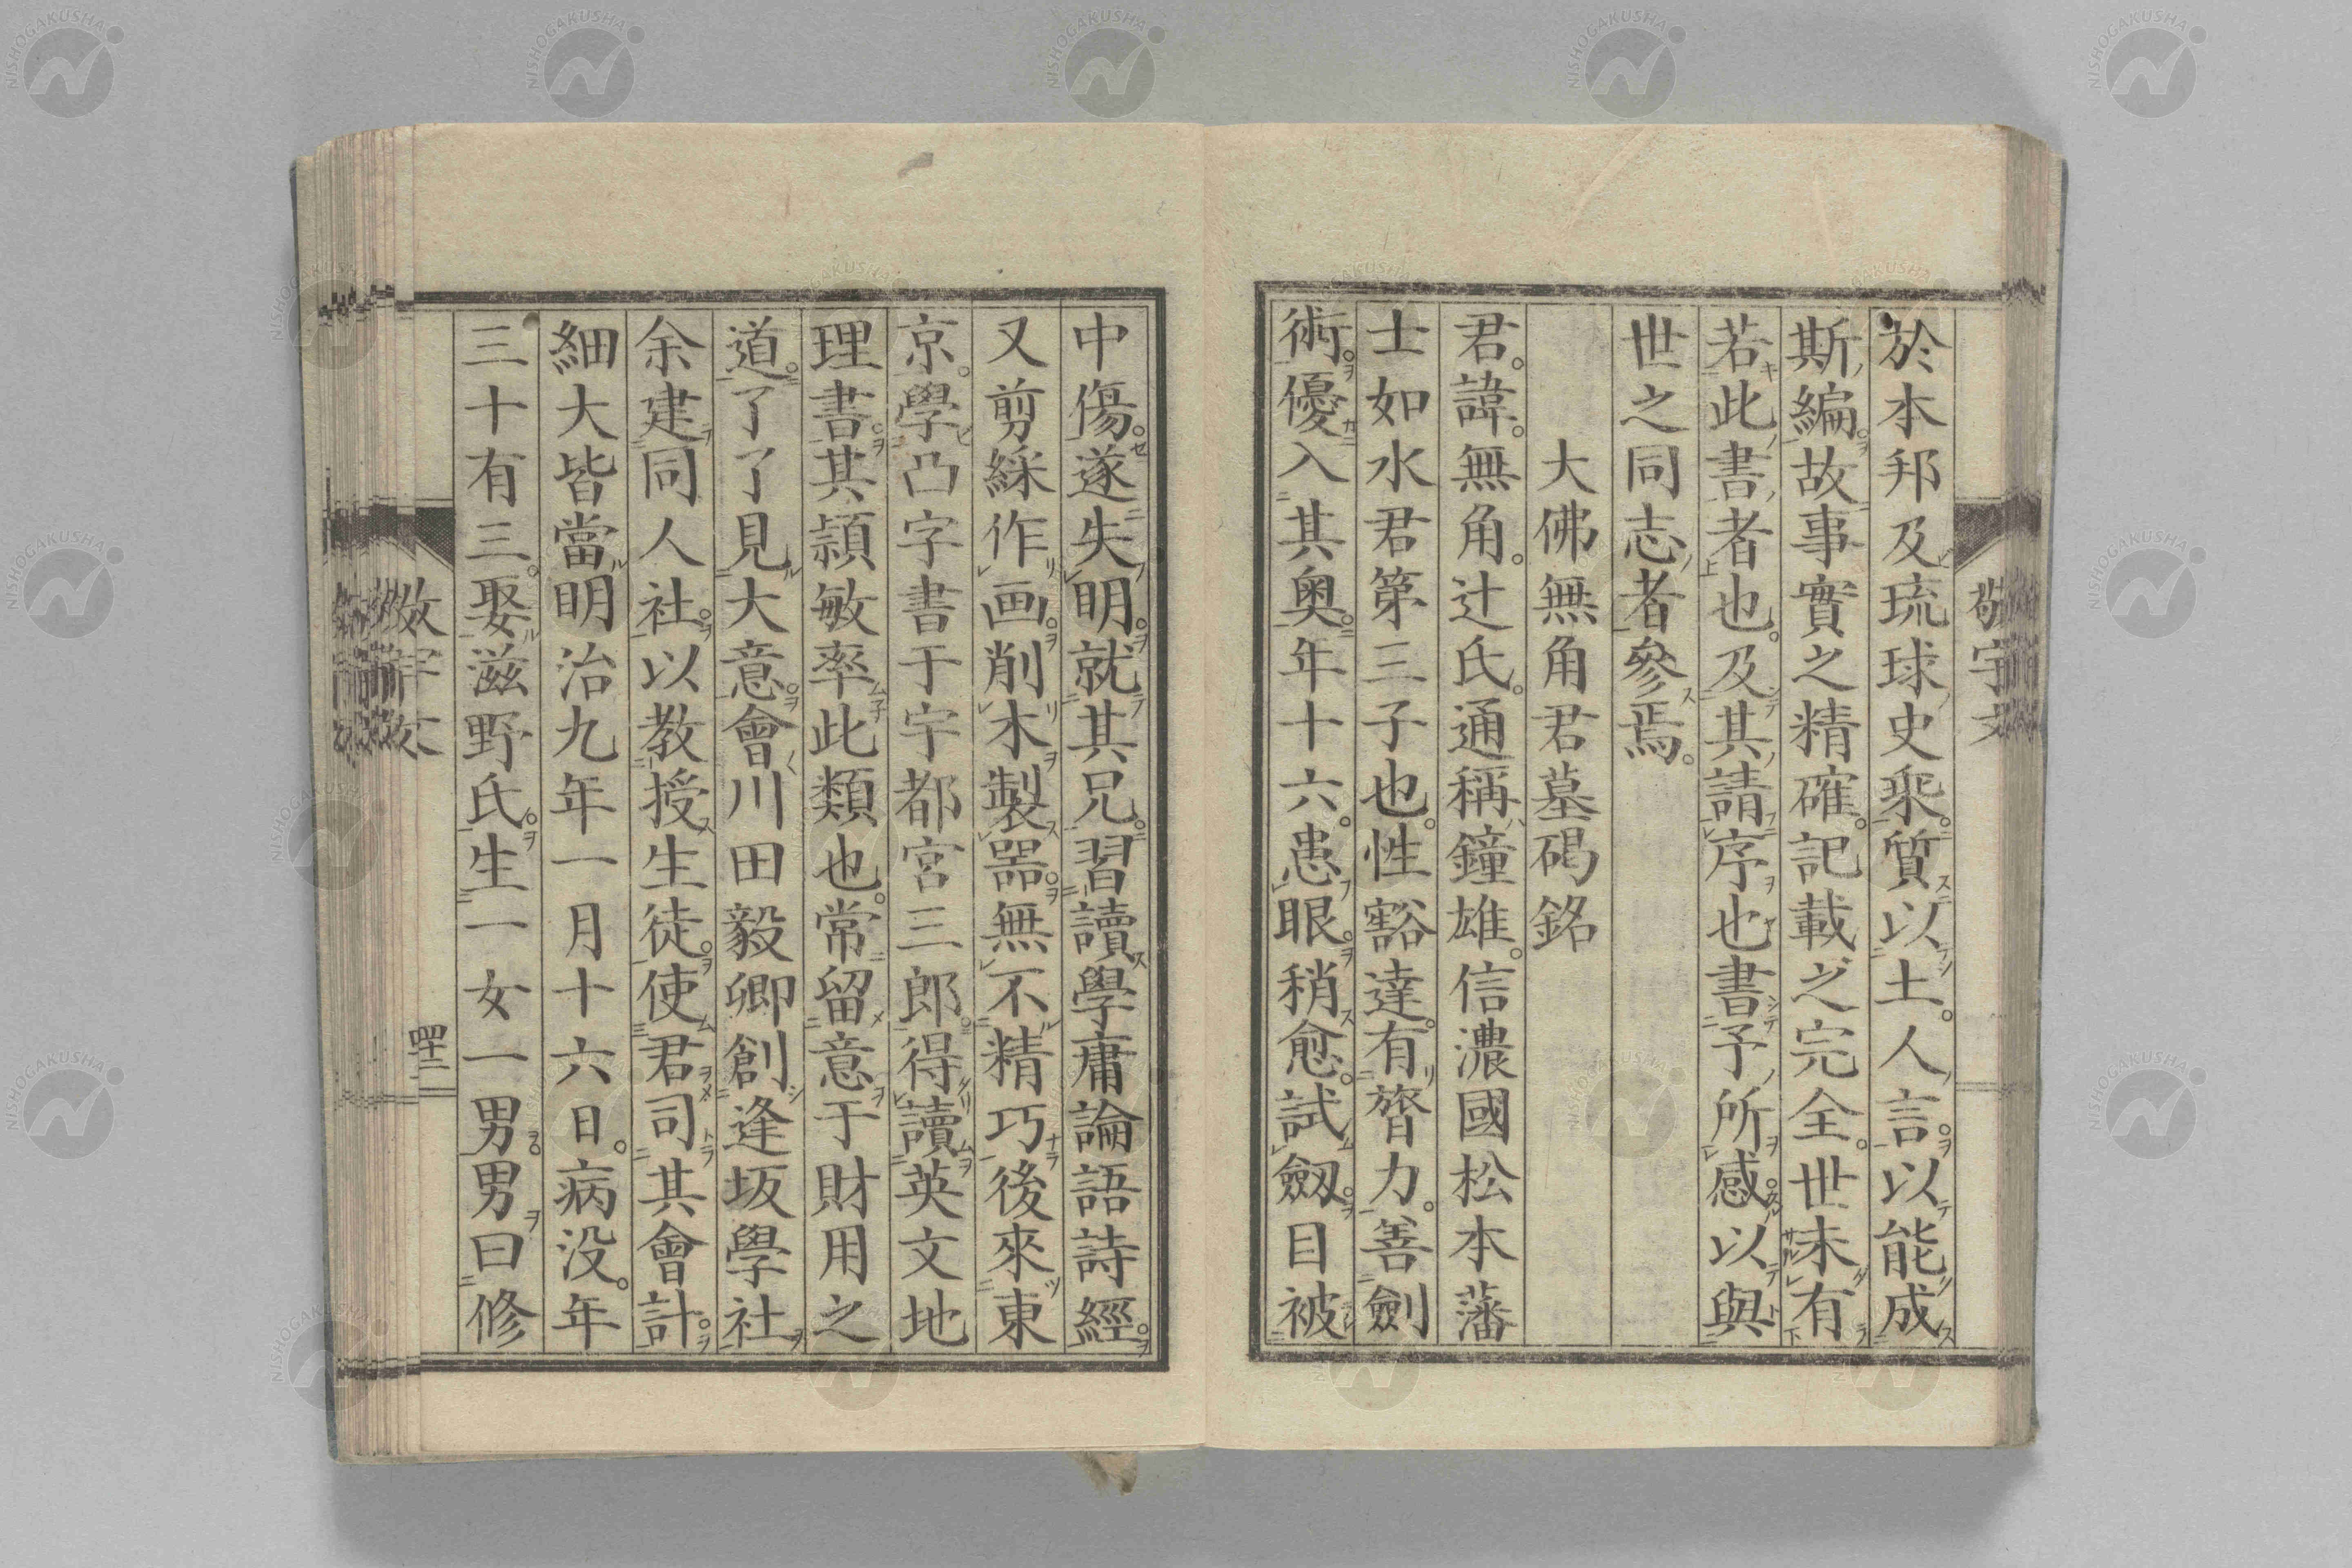 於本邦及琉球史乘。質以土。人言。以能成
斯編。故事實之精確。記載之完全。世未有
若此書者也。及其請序也書予所感以與
世之同志者參焉。
大佛無角君墓碣銘
君。諱。無角。辻氏。通稱鐘雄。信濃國松本藩
士如水君第三子也。性豁達。有膂力。善劍
術。優入其奧。年十六。患眼。稍愈。試劔。目被
中傷。遂失明。就其兄。習讀學庸論語詩經。
又剪綵作画。削木製噐。無不精巧後來東
京。學凸字書于宇都宮三郎。得讀英文地
理書。其穎敏率此類也。常留意于財用之
道。了了見大意。會川田毅卿創逢坂學社
余建同人社。以教授生徒。使君司其會計。
細大皆當明治九年一月十六日。病没。年
三十有三。娶滋野氏。生一女一男。男曰修
敬宇文
四十二